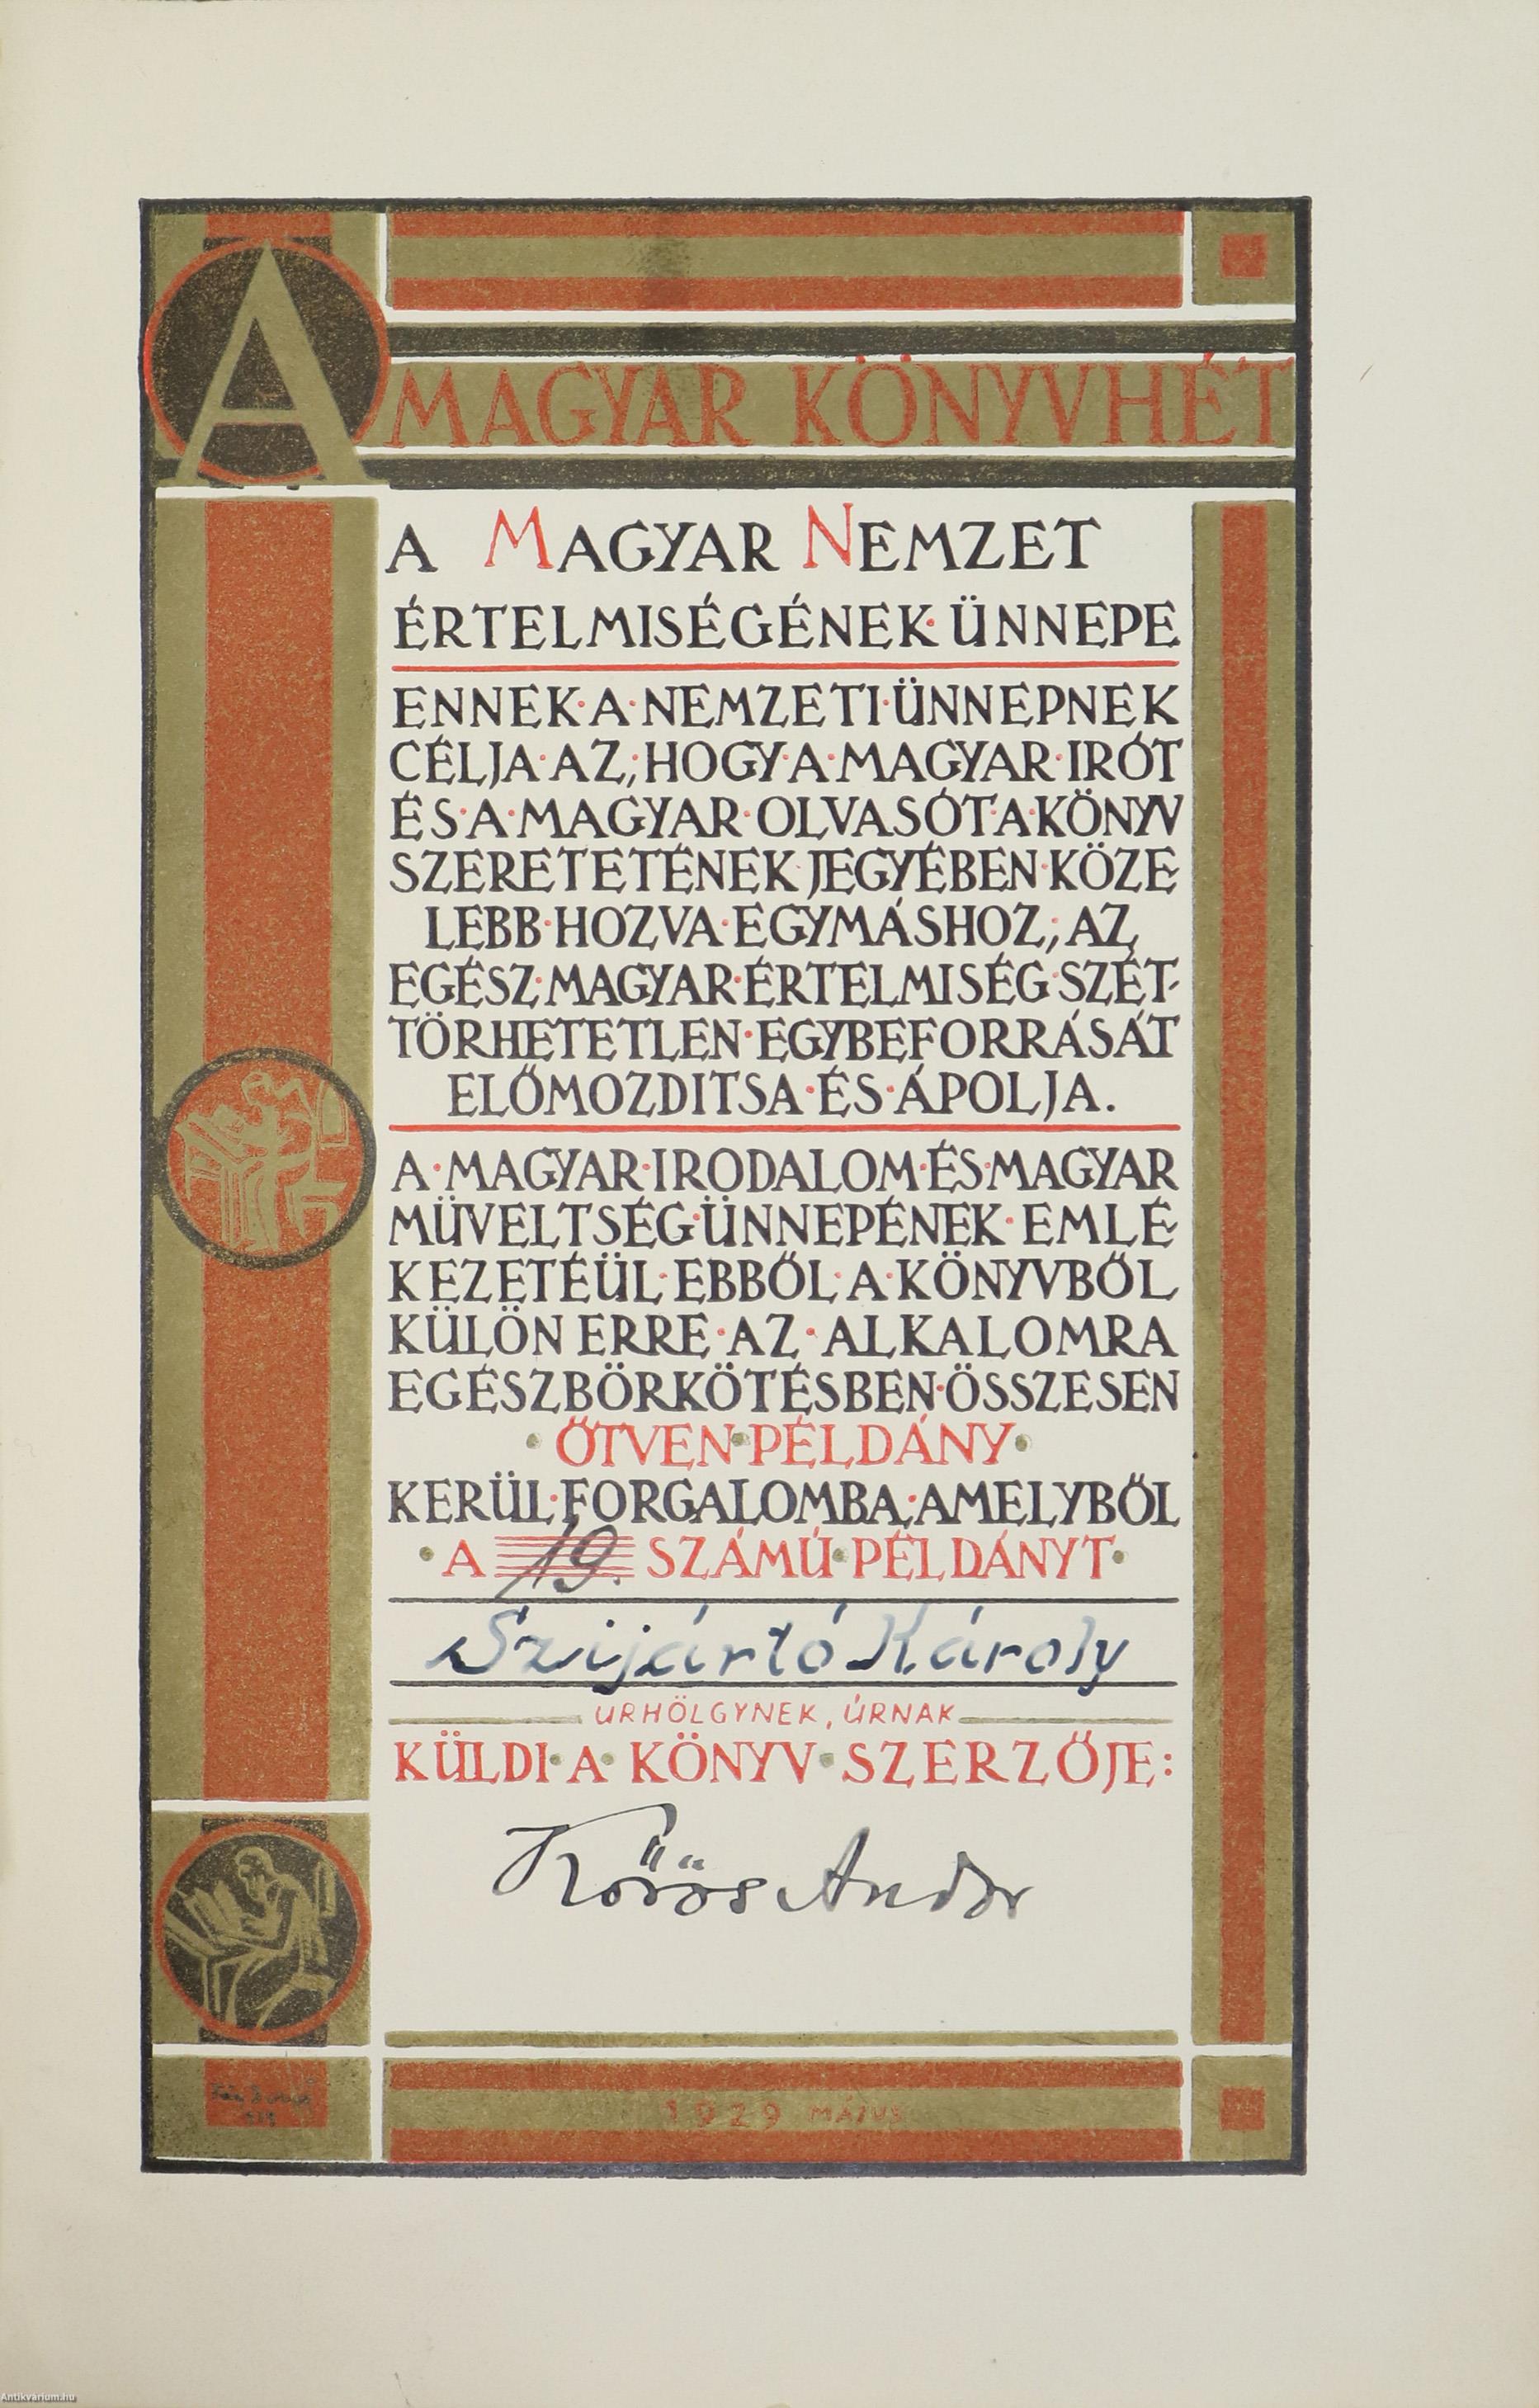 A MAGYAR KÖNYVHÉT
A MAGYAR NEMZET
ÉRTELMISÉGÉNEK·ÜNNEPE
ENNEK·A·NEMZETI·ÜNNEPNEK
CÉLJA·AZ, HOGY·A·MAGYAR·IRÓT
ÉS·A·MAGYAR·OLVASÓT·A·KÖNYV
SZERETETÉNEK·JEGYÉBEN·KÖZE-
LEBB·HOZVA·EGYMÁSHOZ, AZ
EGÉSZ·MAGYAR·ÉRTELMISÉG·SZÉT-
TÖRHETETLEN·EGYBEFORRÁSÁT
ELŐMOZDITSA·ÉS·ÁPOLJA.
A·MAGYAR·IRODALOM·ÉS·MAGYAR
MÜVELTSÉG·ÜNNEPÉNEK·EMLÉ-
KEZETÉÜL·EBBŐL·A·KÖNYVBŐL
KÜLÖN ERRE·AZ·ALKALOMRA
EGÉSZBÖRKÖTÉSBEN·ÖSSZESEN
·ÖTVEN·PÉLDÁNY·
KERÜL·FORGALOMBA, AMELYBŐL
·A 19. SZÁMÚ·PÉLDÁNYT·
Szijártó Károly
URHÖLGYNEK, ÚRNAK
KÜLDI·A·KÖNYV·SZERZŐJE:
Kőrös Andor
1929 MÁJUS
Antikvarium.hu